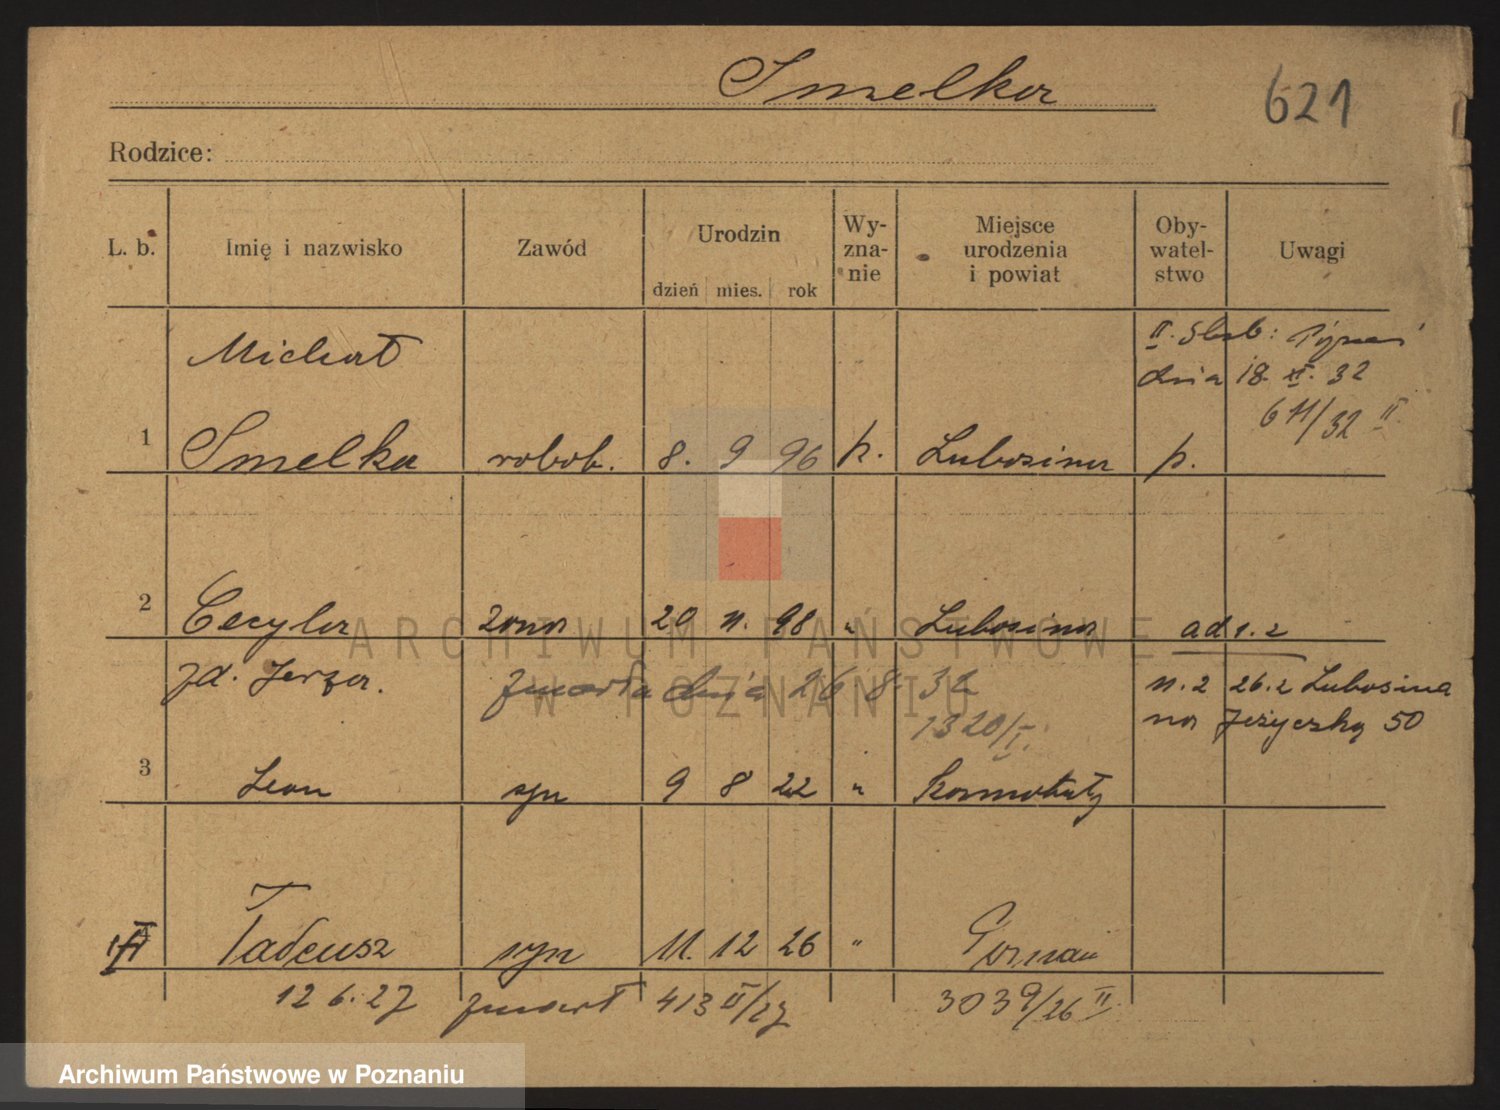 Smelka
621
Rodzice:
L. b. Imię i nazwisko Zawód Urodzin dzień mies. rok Wy-zna-nie Miejsce urodzenia i powiat Oby-watel-stwo Uwagi
II. ślub:
dnia 18. XI. 32
611/32 II
Michał
1 Smelka robot. 8. 9 96 p. Lubosina p.
2 Cecylia żona 20 11. 98 " Lubosina ad 1. 2
zd. Jerza. zmarła dnia 26 8 32 11.2 26.2 Lubosina
1320/I. na Jeżycką 50
3 Leon syn 9 8 22 "
4 Tadeusz syn 11. 12 26 " Poznań
12 6. 27 zmarł 413 II/27 3039/26 II
ARCHIWUM PAŃSTWOWE
W POZNANIU
Archiwum Państwowe w Poznaniu